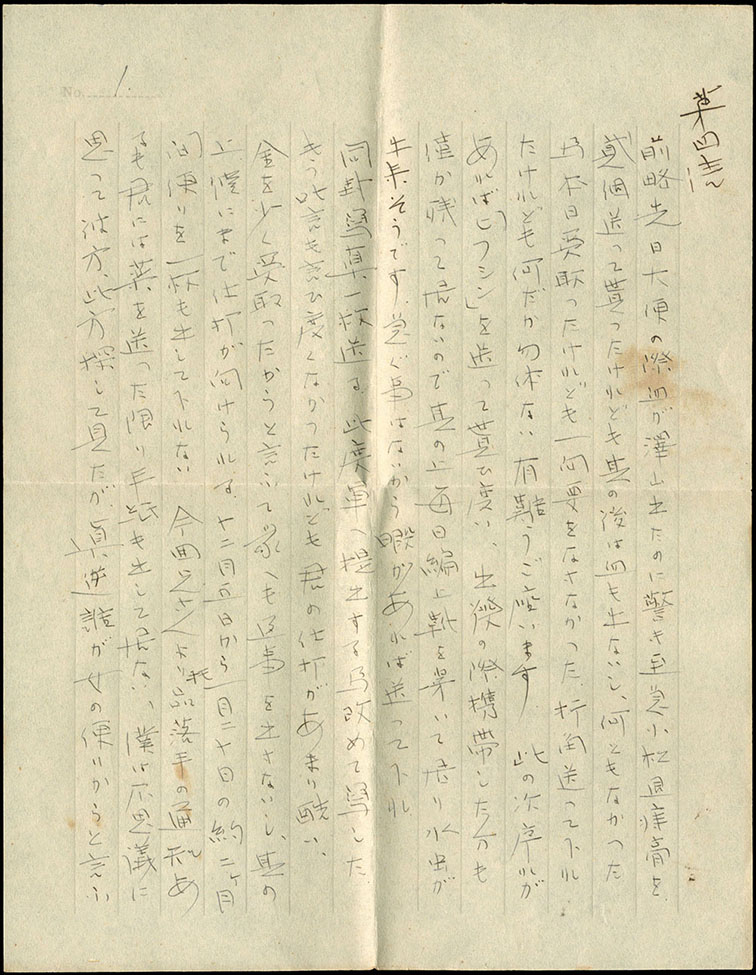 No. 1.
前略先日大便の際血が澤山出たのに驚き至急小松退痔膏を
貳個送って貰ったけれども其の後は血も出ないし、何ともなかった
乃本日受取ったけれども一向要をなさなかった、折角送って下れ
たけれども何だか勿体ない 有難うご座います 此の次序が
あれば「フシン」を送って貰ひ度い、出發の際携帯した分も
僅か残って居ないので其の上毎日編上靴を穿いて居り水虫が
出来そうです、急ぐ事はないから暇があれば送って下れ
同封寫真一枚送る、此度軍へ提出する為改めて寫した
もう此言も言ひ度くなかったけれども君の仕打があまり酷い、
金を少く受取ったからと言いて家へも返事を出さないし、其の
上僕にまで仕打が向けられる、十二月五日から一月二十日の約二ヶ月
間便りを一杯も出して下れない 今回兄さんより品落手の通知あ
るも君には薬を送った限り手紙も出して居ない、僕は不思議に
思って彼方、此方探して見たが、真逆誰が女の便いからと言ふ